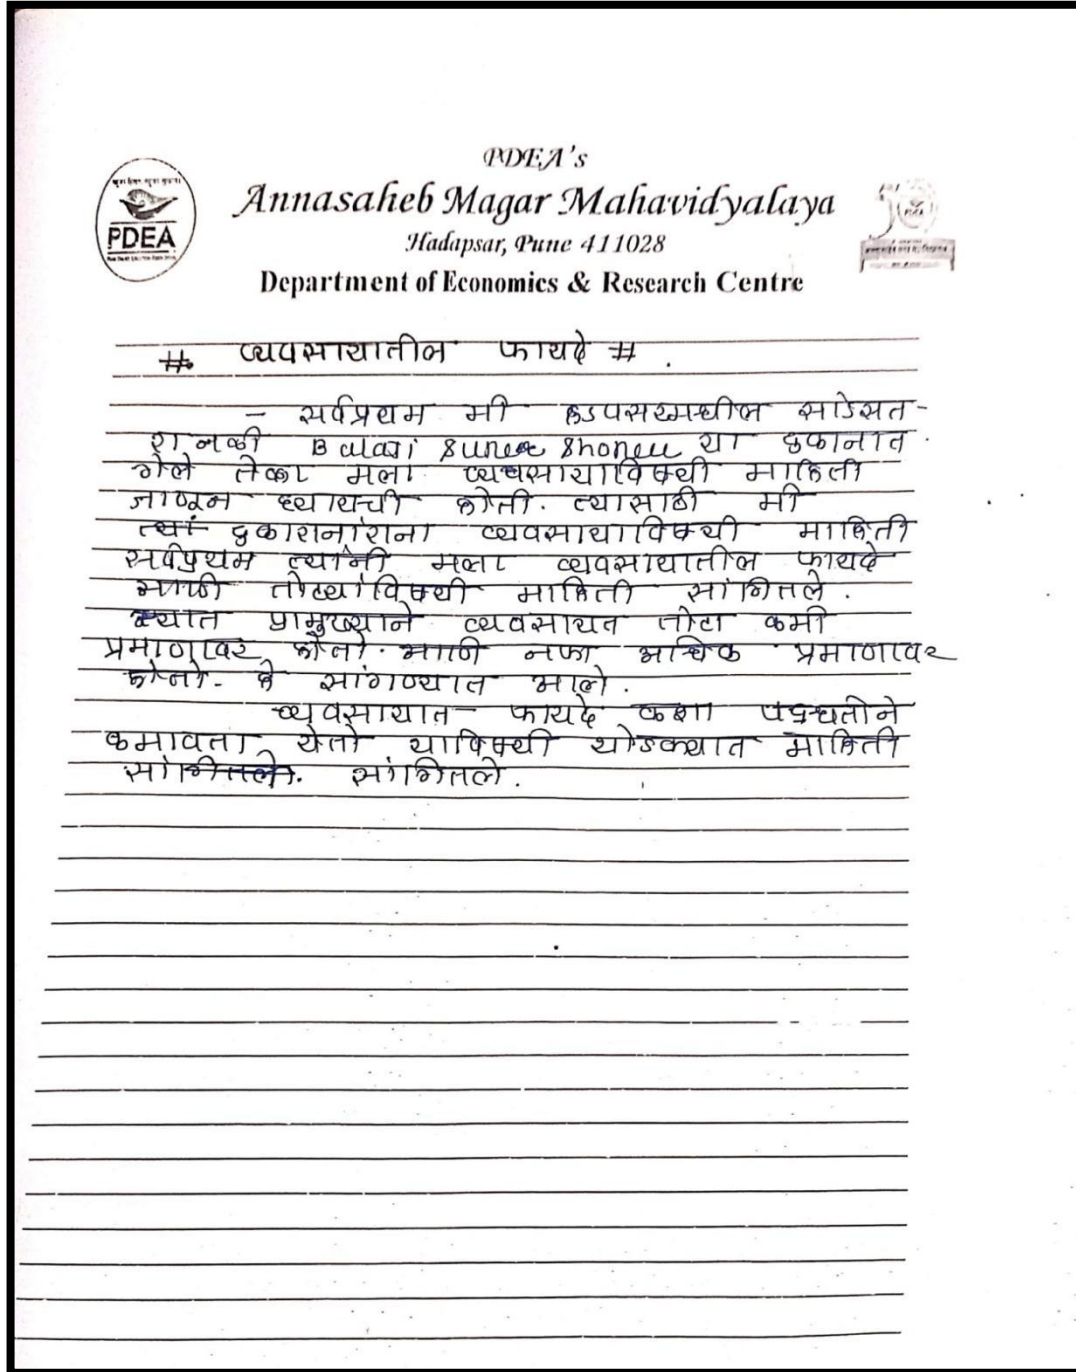 PDEA's
Annasaheb Magar Mahavidyalaya
Hadapsar, Pune 411028
Department of Economics & Research Centre
PDEA
# व्यवसायातील फायदे #.
- सर्वप्रथम मी हडपसरमधील साडेसत-
रा नळी Balaji या दुकानात.
गेले तेव्हा मला व्यवसायाविषयी माहिती
जाणून घ्यायची होती. त्यासाठी मी
त्यां दुकारानांराना व्यवसायाविषयी माहिती
सर्वप्रथम त्यांनी मला व्यवसायातील फायदे
आणि तोट्यांविषयी माहिती सांगितले.
त्यात प्रामुख्याने व्यवसायत तोटा कमी
प्रमाणावर होतो. आणि नफा अधिक प्रमाणावर
होतो- हे सांगण्यात आले.
व्यवसायात- फायदे कशा पद्धतीने
कमावता येतो याविषयी थोडक्यात माहिती
सांगितले. सांगितले.